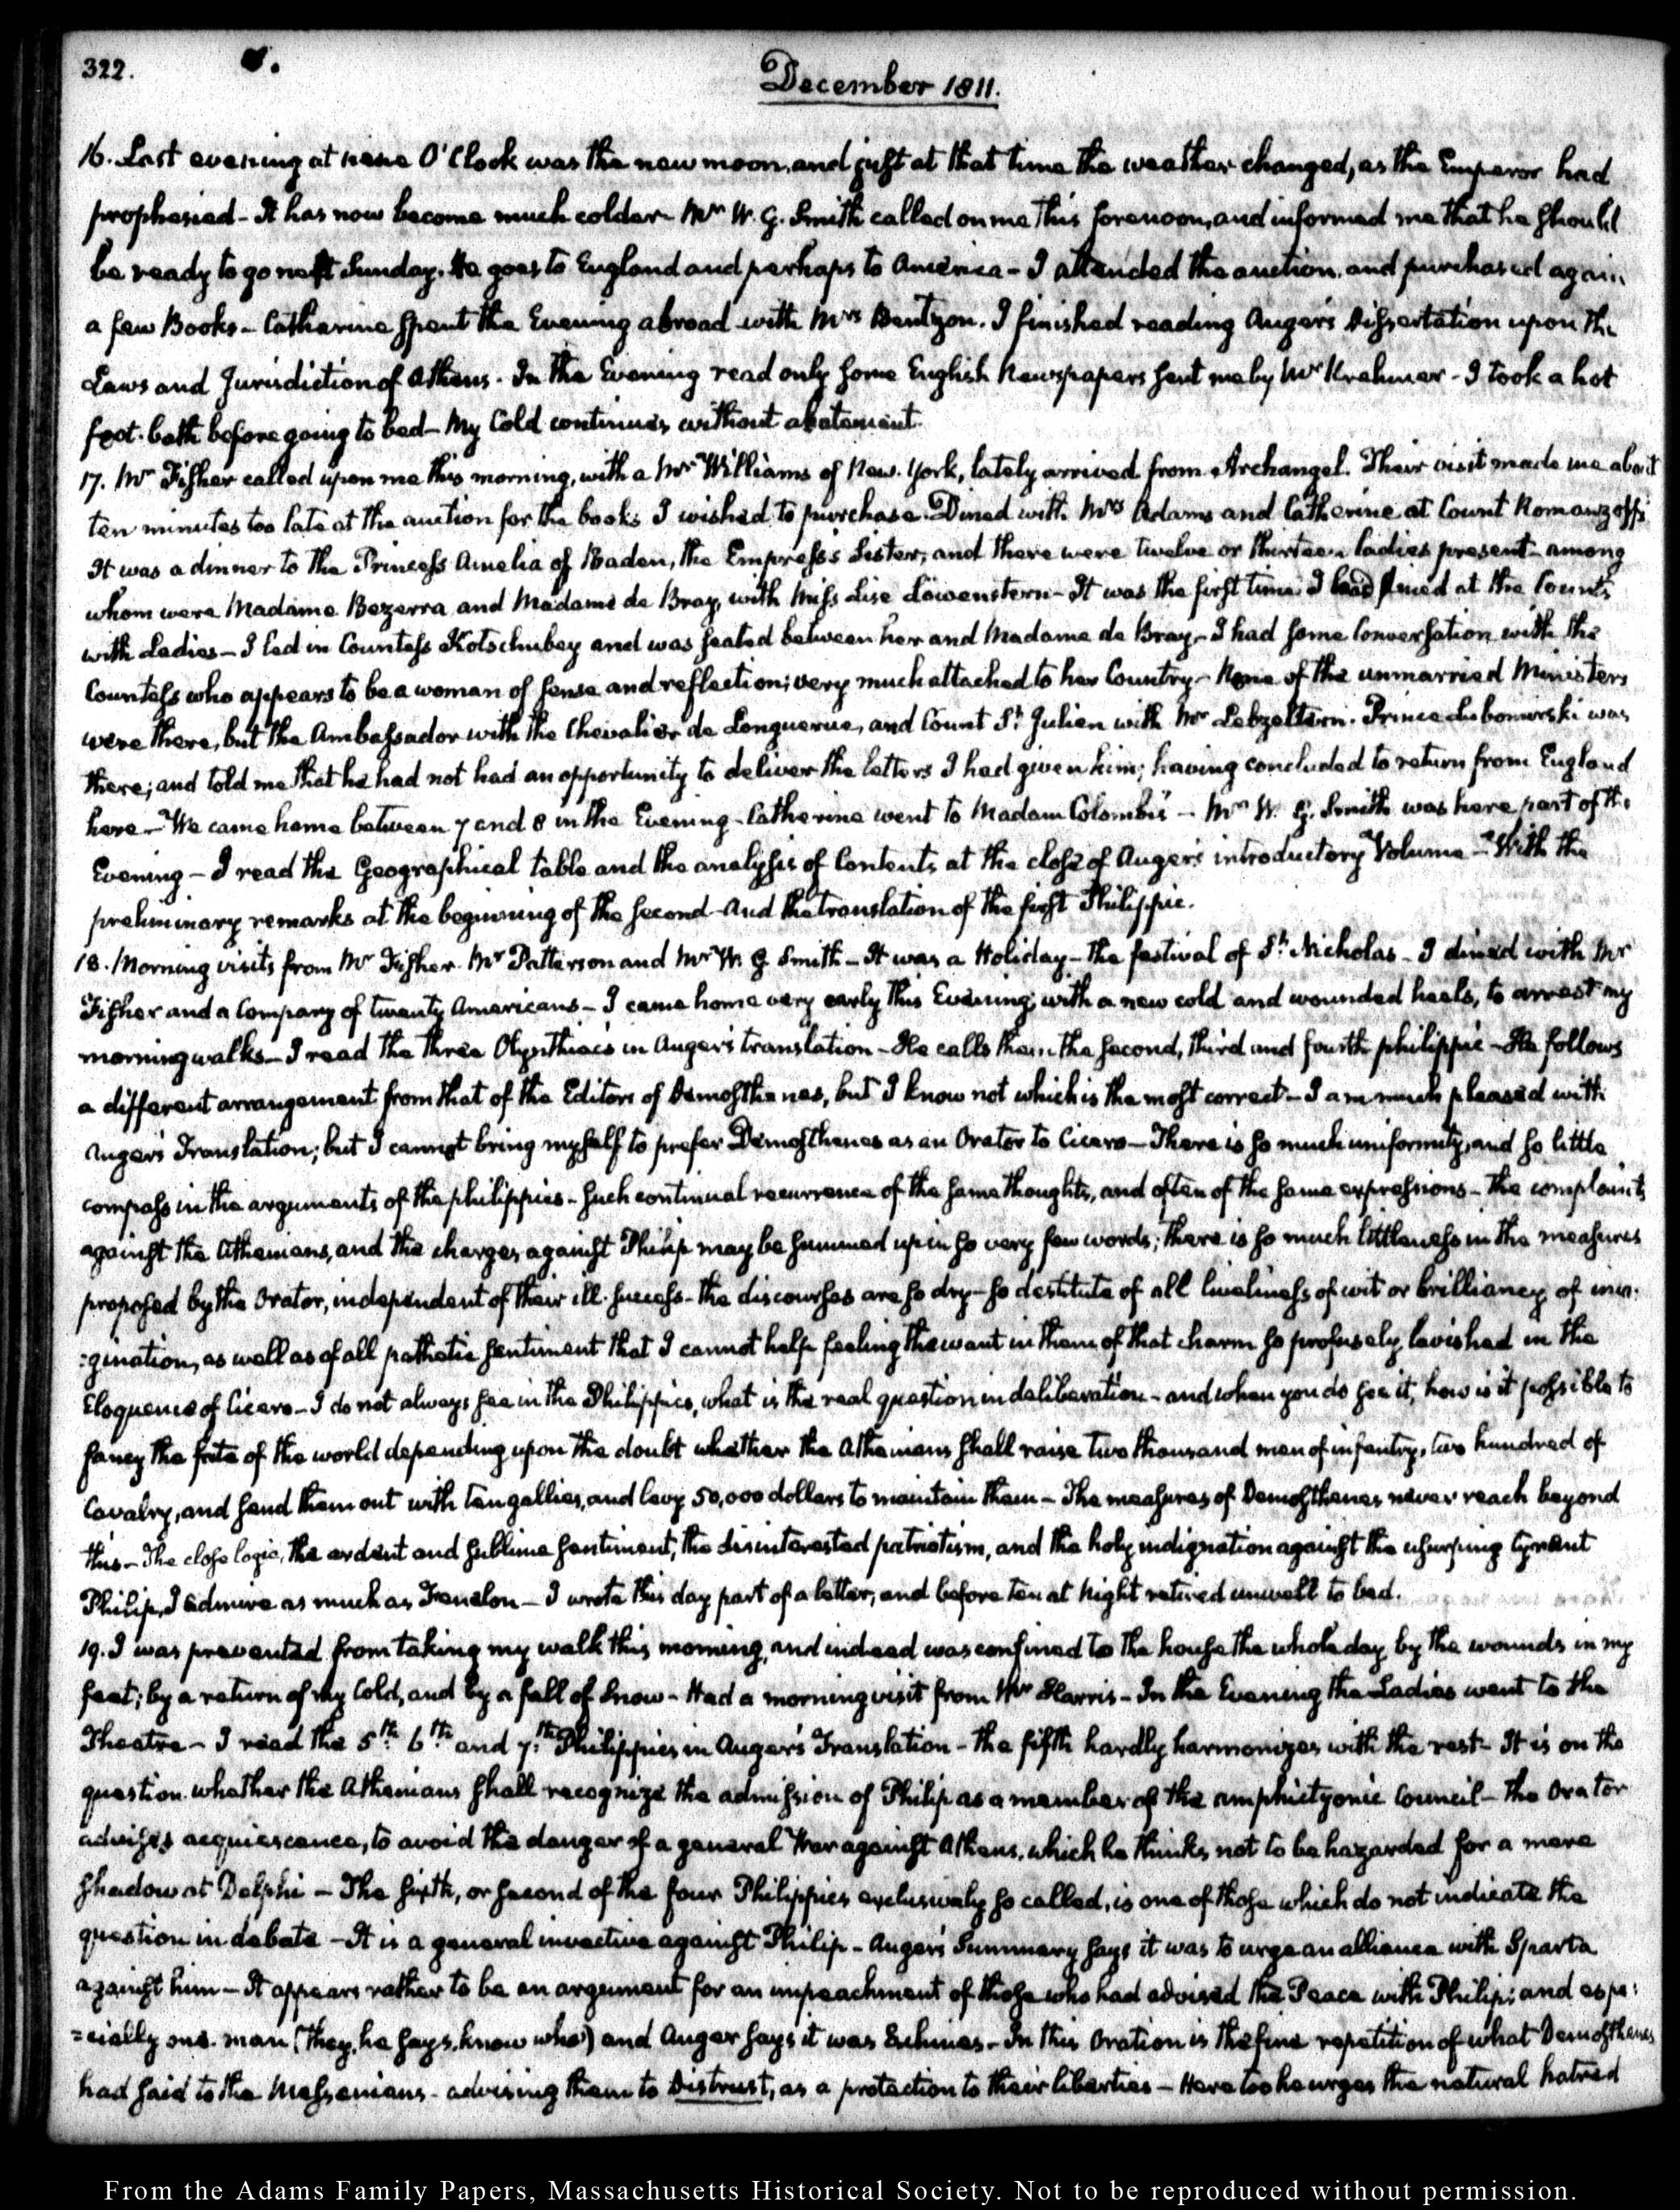 322.
December 1811.
16. Last evening at nine O'Clock was the new moon, and just at that time the weather changed, as the Emperor had
prophesied - It has now become much colder - Mr W. G. Smith called on me this forenoon, and informed me that he should
be ready to go next Sunday. He goes to England and perhaps to America - I attended the auction, and purchased again
a few Books - Catharine spent the Evening abroad with Mrs Bentzon. I finished reading Auger's Dissertation upon the
Laws and Jurisdiction of Athens. In the Evening read only some English Newspapers sent me by Mr Krehmer - I took a hot
foot-bath before going to bed - My Cold continues without abatement.
17. Mr Fisher called upon me this morning, with a Mr Williams of New-York, lately arrived from Archangel. Their visit made me about
ten minutes too late at the auction for the books I wished to purchase. Dined with Mrs Adams and Catherine at Count Romanzoff's
It was a dinner to the Princess Amelia of Baden, the Empress's Sister, and there were twelve or thirteen ladies present - among
whom were Madame Bezerra and Madame de Bray, with Miss Lise Löwenstern - It was the first time I had dined at the Count's
with Ladies - I led in Countess Kotschubey and was seated between her and Madame de Bray - I had some Conversation with the
Countess who appears to be a woman of sense and reflection; very much attached to her Country - None of the unmarried Ministers
were there, but the Ambassador with the Chevalier de Longuerue, and Count St. Julien with Mr Lebzeltern. Prince Lubomirski was
there; and told me that he had not had an opportunity to deliver the letters I had given him; having concluded to return from England
here - We came home between 7 and 8 in the Evening - Catherine went to Madam Colombi's - Mr W. G. Smith was here part of the
Evening - I read the Geographical table and the analysis of Contents at the close of Auger's introductory Volume - With the
preliminary remarks at the beginning of the second - And the translation of the first Philippic.
18. Morning visits from Mr Fisher. Mr Patterson and Mr W. G. Smith - It was a Holiday - the festival of St. Nicholas - I dined with Mr
Fisher and a Company of twenty Americans - I came home very early this Evening, with a new cold and wounded heels, to arrest my
morning walks - I read the three Olynthiacs in Auger's translation - He calls them the second, third and fourth philippic - He follows
a different arrangement from that of the Editors of Demosthenes, but I know not which is the most correct - I am much pleased with
Auger's Translation; but I cannot bring myself to prefer Demosthenes as an Orator to Cicero - There is so much uniformity, and so little
compass in the arguments of the philippics - such continual recurrence of the same thoughts, and often of the same expressions - the complaints
against the Athenians, and the charges against Philip may be summed up in so very few words; there is so much littleness in the measures
proposed by the Orator, independent of their ill-success - the discourses are so dry - so destitute of all liveliness of wit or brilliancy of ima:
:gination, as well as of all pathetic sentiment that I cannot help feeling the want in them of that charm so profusely lavished in the
Eloquence of Cicero - I do not always see in the Philippics, what is the real question in deliberation - and when you do see it, how is it possible to
fancy the fate of the world depending upon the doubt whether the Athenians shall raise two thousand men of infantry, two hundred of
Cavalry, and send them out with ten gallies, and levy 50,000 dollars to maintain them - The measures of Demosthenes never reach beyond
this - The close logic, the ardent and sublime sentiment, the disinterested patriotism, and the holy indignation against the usurping tyrant
Philip, I admire as much as Fenelon - I wrote this day part of a letter, and before ten at Night retired unwell to bed.
19. I was prevented from taking my walk this morning, and indeed was confined to the house the whole day by the wounds in my
feet; by a return of my Cold, and by a fall of Snow - Had a morning visit from Mr Harris - In the Evening the Ladies went to the
Theatre - I read the 5th. 6th. and 7th. Philippics in Auger's Translation - the fifth hardly harmonizes with the rest - It is on the
question whether the Athenians shall recognize the admission of Philip as a member of the amphictyonic Council - the Orator
advises acquiescence, to avoid the danger of a general War against Athens, which he thinks not to be hazarded for a mere
shadow at Delphi - The sixth, or second of the four Philippics exclusively so called, is one of those which do not indicate the
question in debate - It is a general invective against Philip - Auger's Summary says it was to urge an alliance with Sparta
against him - It appears rather to be an argument for an impeachment of those who had advised the Peace with Philip; and espe:
=cially one man (They, he says, know who) and Auger says it was Eschines - In this Oration is the fine repetition of what Demosthenes
had said to the Messenians - advising them to Distrust, as a protection to their liberties - Here too he urges the natural hatred
From the Adams Family Papers, Massachusetts Historical Society. Not to be reproduced without permission.